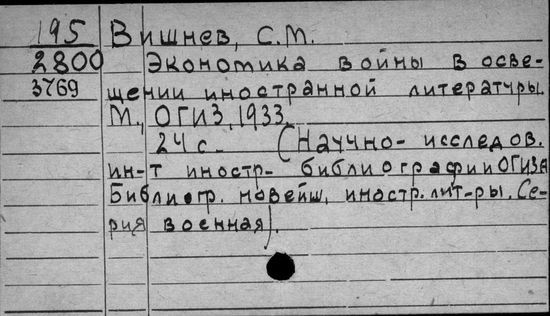 195 Вишнев, С.М.
2800 Экономика войны в осве-
3769 щении иностранной литературы.
М., ОГИЗ, 1933.
24 с. (Научно- исслед.
ин-т иностр- библиографии ОГИЗА
Библиогр. новейш. иностр. лит-ры. Се-
рия военная).